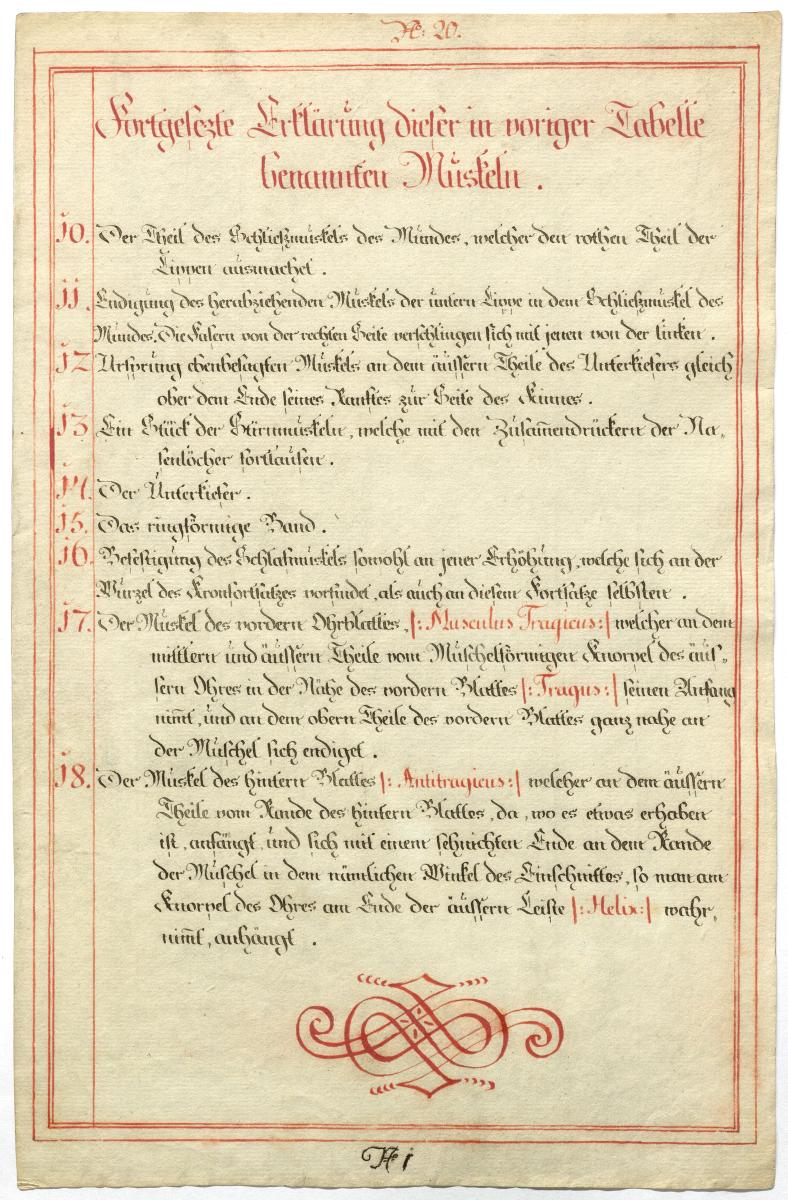 No: 20.
Fortgesezte Erklärung dieser in voriger Tabelle
benannten Muskeln.
10. Der Theil des Schließmuskels des Mundes, welcher den rothen Theil der
Lippen ausmachet.
11. Endigung des herabziehenden Muskels der untern Lippe in dem Schließmuskel des
Mundes. Die Fasern von der rechten Seite verschlingen sich mit jenen von der linken.
12 Ursprung ebenbesagten Muskels an dem äussern Theile des Unterkiefers gleich
ober dem Ende seines Ranftes zur Seite des Kinnes.
13. Ein Stück der Stirnmuskeln, welche mit den Zusam̅endrückern der Na„
senlöcher fortlaufen.
14. Der Unterkiefer.
15. Das ringförmige Band.
16. Befestigung des Schlafmuskels sowohl an jener Erhöhung, welche sich an der
Wurzel des Kronfortsatzes vorfindet, als auch an diesem Fortsatze selbsten.
17. Der Muskel des vordern Ohrblattes, /: Musculus Tragicus:/ welcher an dem
mittlern und äussern Theile vom Muschelförmigen Knorpel des äus„
sern Ohres in der Nähe des vordern Blattes /: Tragus:/ seinen Anfang
nim̅t, und an dem obern Theile des vordern Blattes ganz nahe an
der Muschel sich endiget.
18. Der Muskel des hintern Blattes /: Antitragicus:/ welcher an dem äussern
Theile vom Rande des hintern Blattes, da, wo es etwas erhaben
ist, anfängt, und sich mit einem sehnichten Ende an dem Rande
der Muschel in dem nämlichen Winkel des Einschnittes, so man am
Knorpel des Ohres am Ende der äussern Leiste /: Helix:/ wahr„
nim̅t, anhängt.
No 1